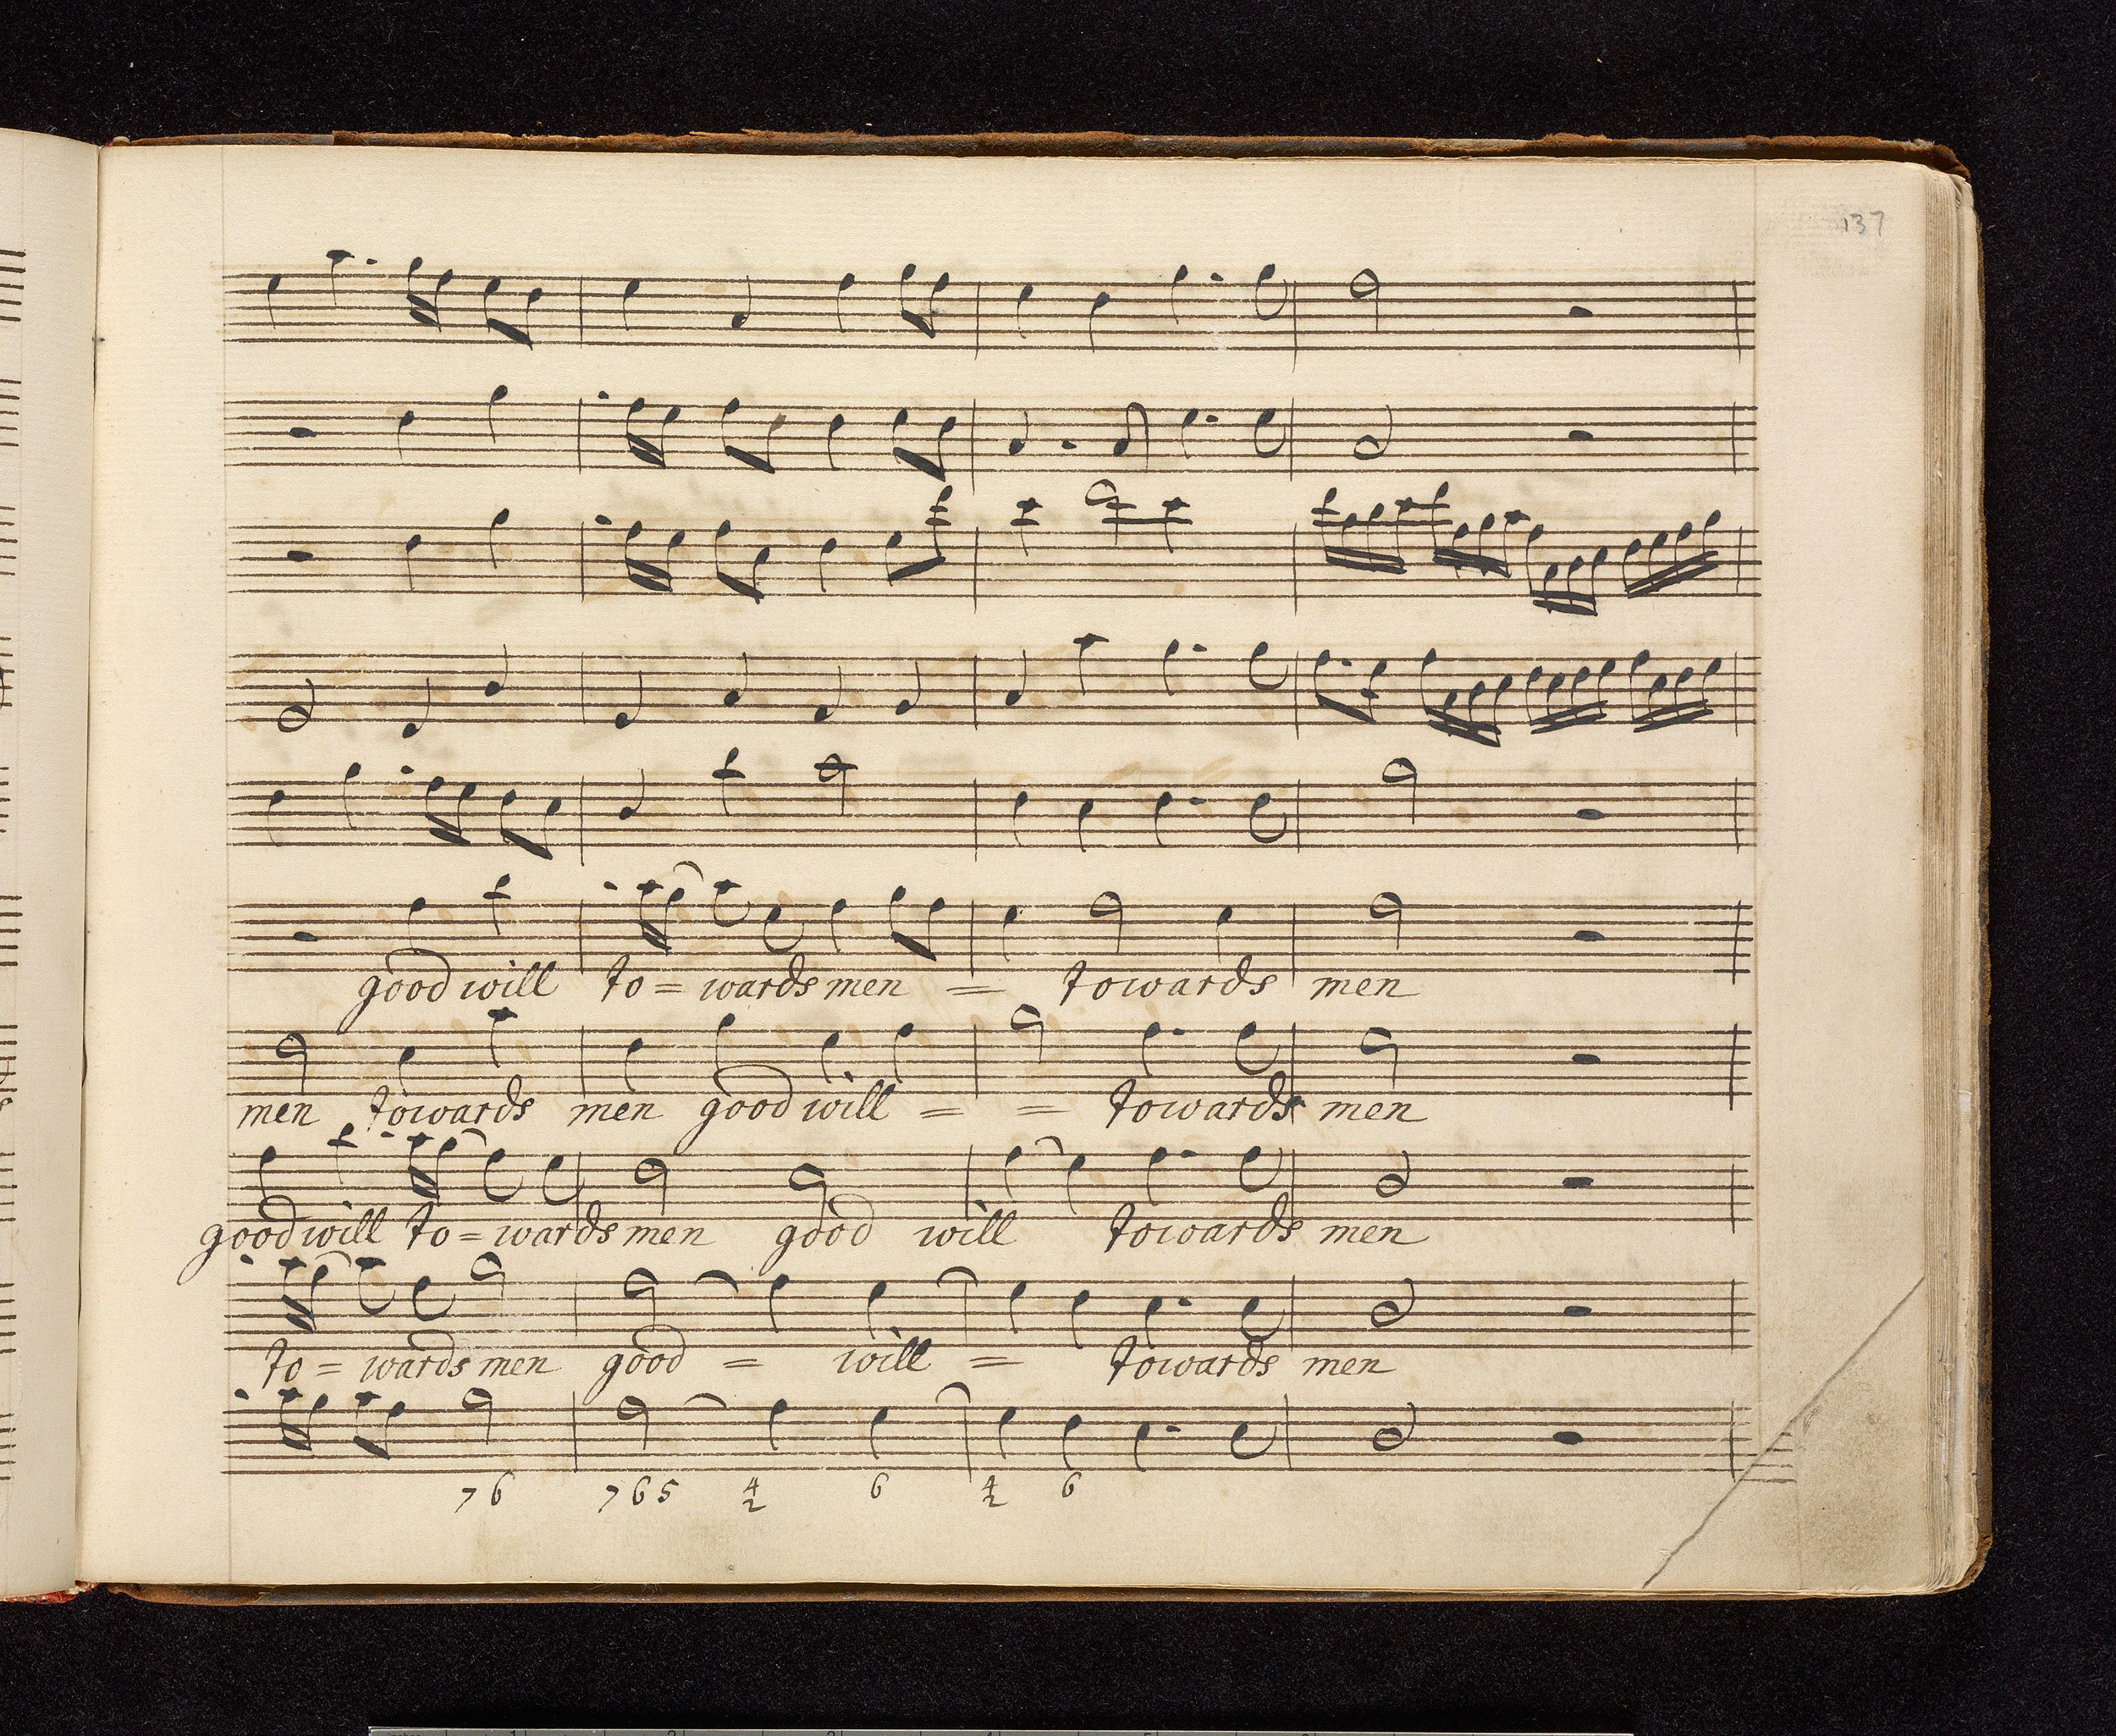 137
good will to = wards men = towards men
men towards men good will = = towards men
good will to = wards men good will towards men
to = wards men good = will = towards men
7 6 7 6 5 4 2 6 4 2 6